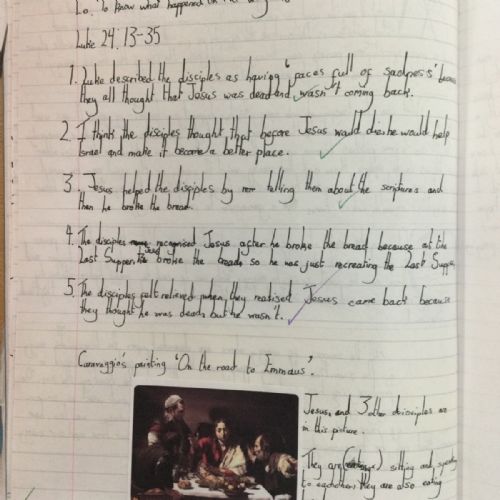 Lo: To know what happened on the
Luke 24: 13-35
1. Luke described the disciples as having 'faces full of sadness' because
they all thought that Jesus was dead and wasn't coming back.
2. I think the disciples thought that before Jesus would die he would help
Israel and make it become a better place.
3. Jesus helped the disciples by telling them about the scriptures and
then he broke the bread.
4. The disciples recognised Jesus after he broke the bread because at the
Last Supper, broke the bread so he was just recreating the Last Supper
5. The disciples felt relieved when they realised Jesus came back because
they thought he was dead, but he wasn't.
Caravaggio's painting 'On the road to Emmaus'.
Jesus, and 3 other disciples are
in this picture.
They are sitting and
to eachother, they are also eating